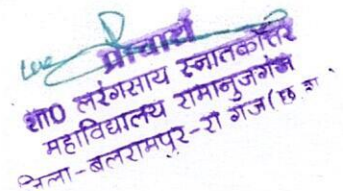 प्राचार्य
शा0 लरंगसाय स्नातकोत्तर
महाविद्यालय रामानुजगंज
जिला-बलरामपुर-रा गंज(छ ग